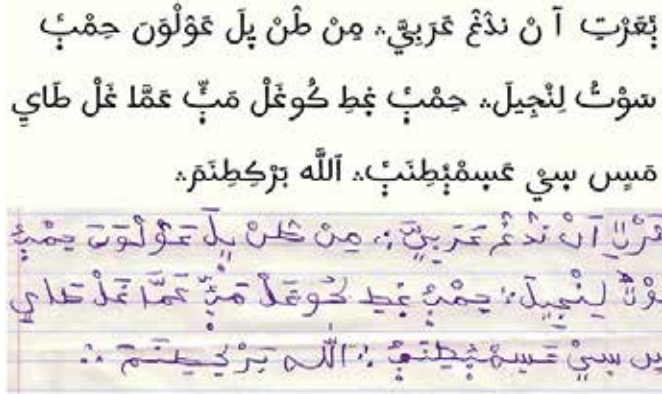 بٜعَرْتِ آ نْ ندْغْ عَرَبِيَّ؞ مِنْ طْنْ پِلَ عَوْلْوَنَ حِمْبٜ
سَوْتُ لِنْجِيلَ؞ حِمْبٜ غِطِ كُوغَلْ مَبّٜ عَمَّا غَلْ طَايِ
مَسِن سِيْ عَسِمْبٜطِنَبٜ؞ اَللَّه بَرْكِطِنَمَ؞
عَرْتِ آ نْ ندْغْ عَرَبِيَّ؞ مِنْ طْنْ پِلَ عَوْلْوَنَ حِمْبٜ
وْتُ لِنْجِيلَ؞ حِمْبٜ غِطِ كُوغَلْ مَبّٜ عَمَّا غَلْ طَايِ
سِن سِيْ عَسِمْبٜطِنَبٜ؞ اَللَّه بَرْكِطِنَمَ؞